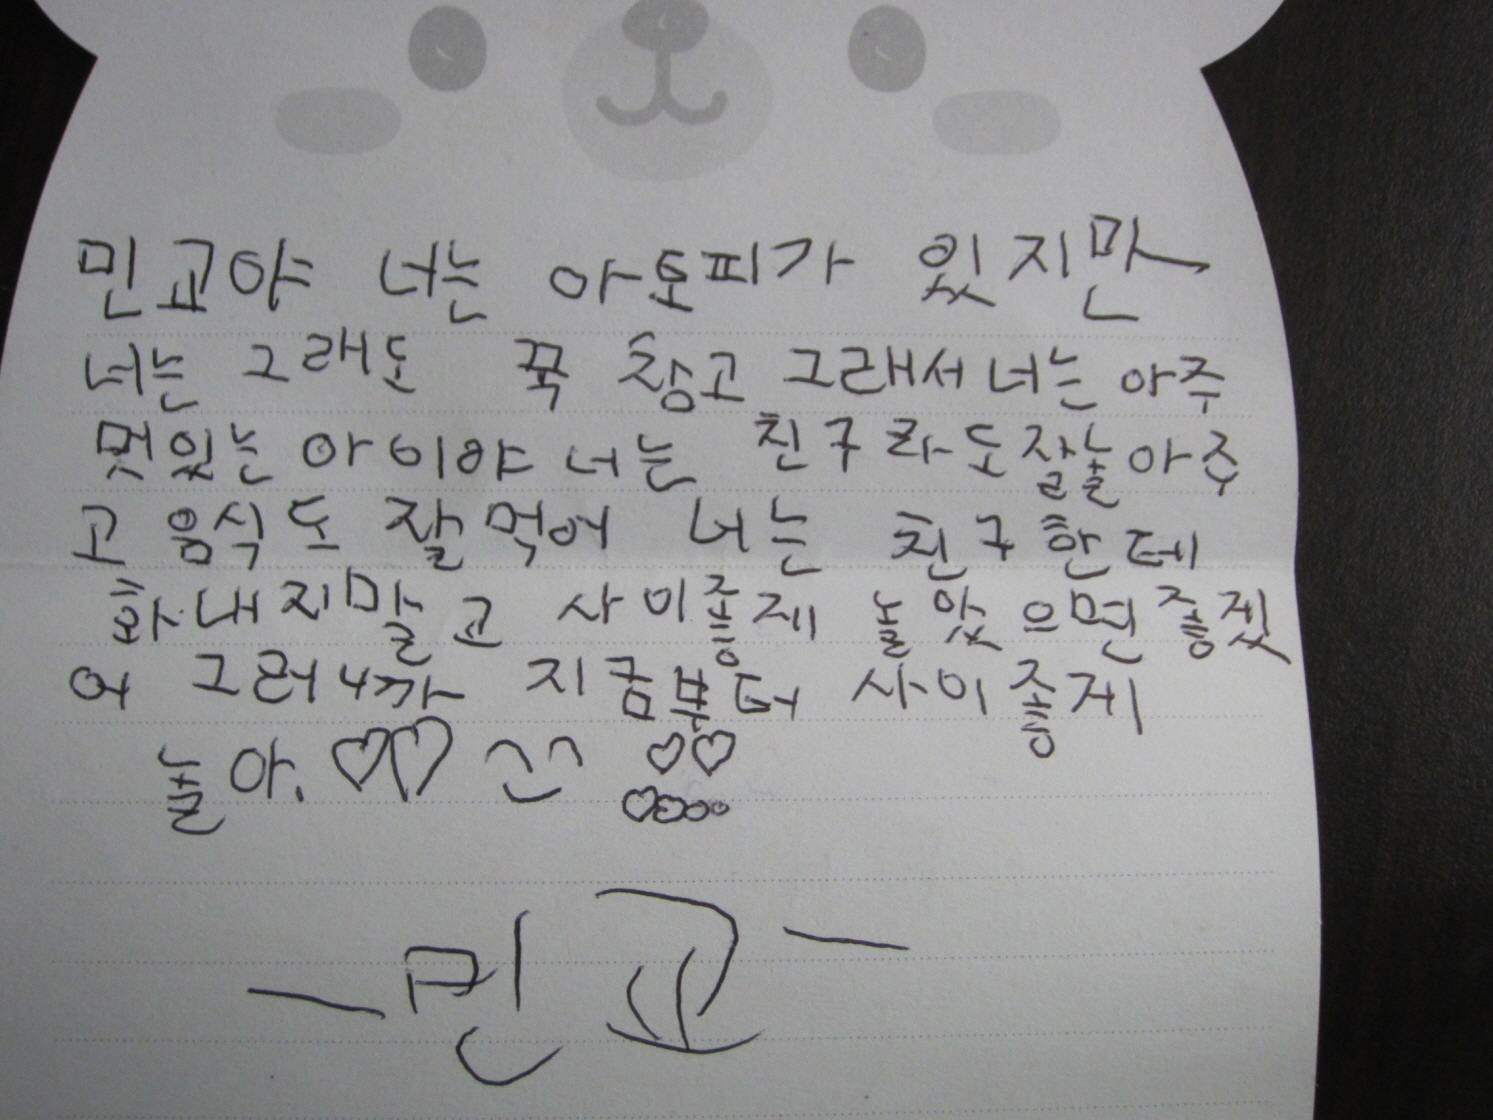 민교야 너는 아토피가 있지만
너는 그래도 꾹 참고 그래서 너는 아주
멋있는 아이야 너는 친구라도 잘놀아주
고 음식도 잘먹어 너는 친구한테
화내지말고 사이좋게 놀았으면 좋겠
어 그러니까 지금부터 사이좋게
놀아.♡♡ ^_^ ♡♡
♡♡○○○
-민교-